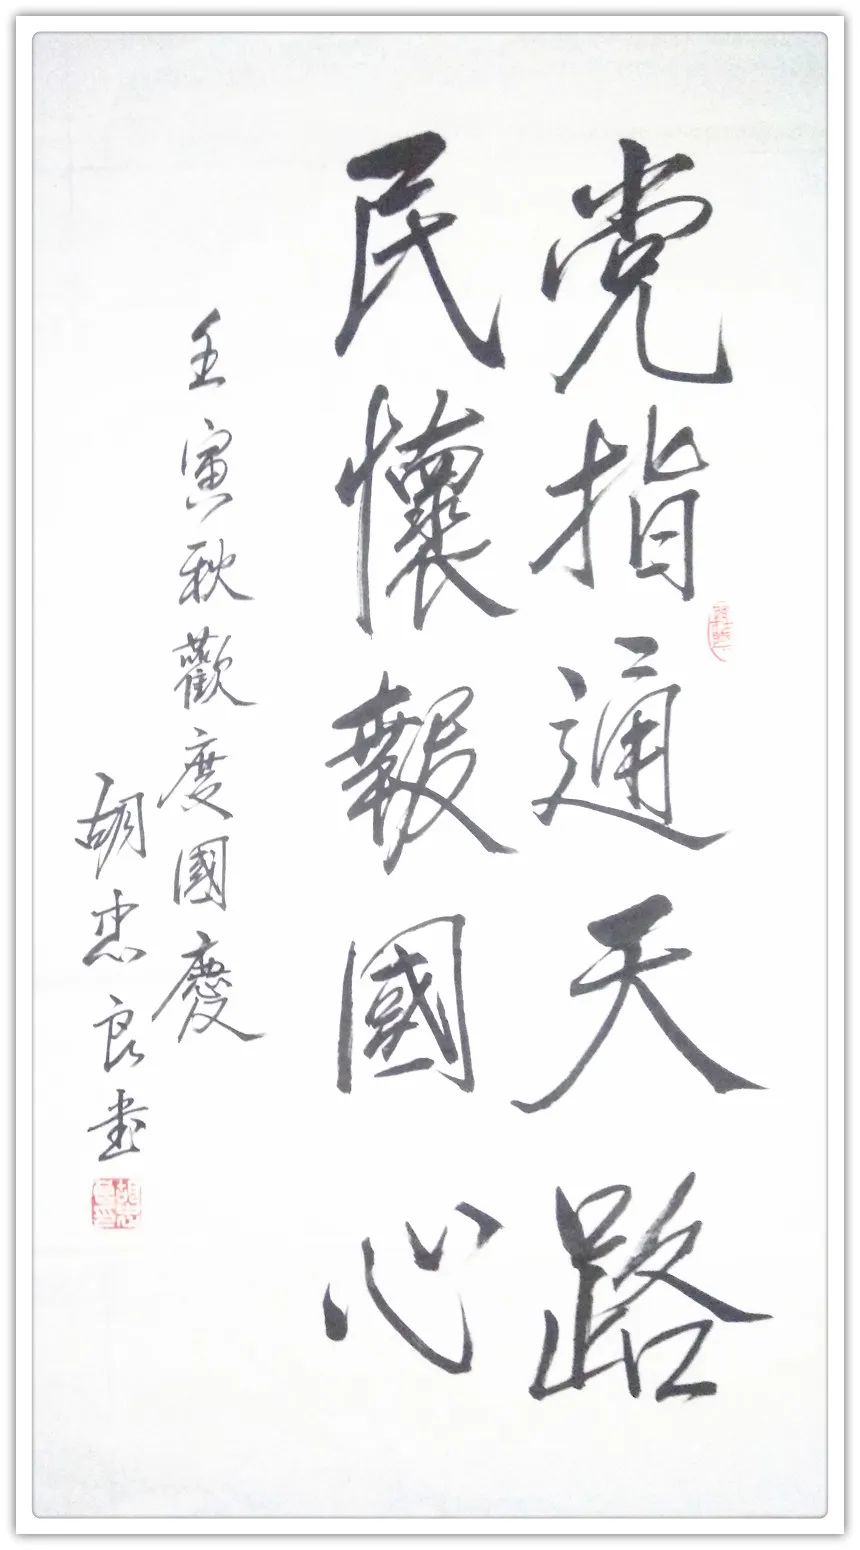 党指通天路
民懷報國心
壬寅秋歡度國慶
胡忠良書